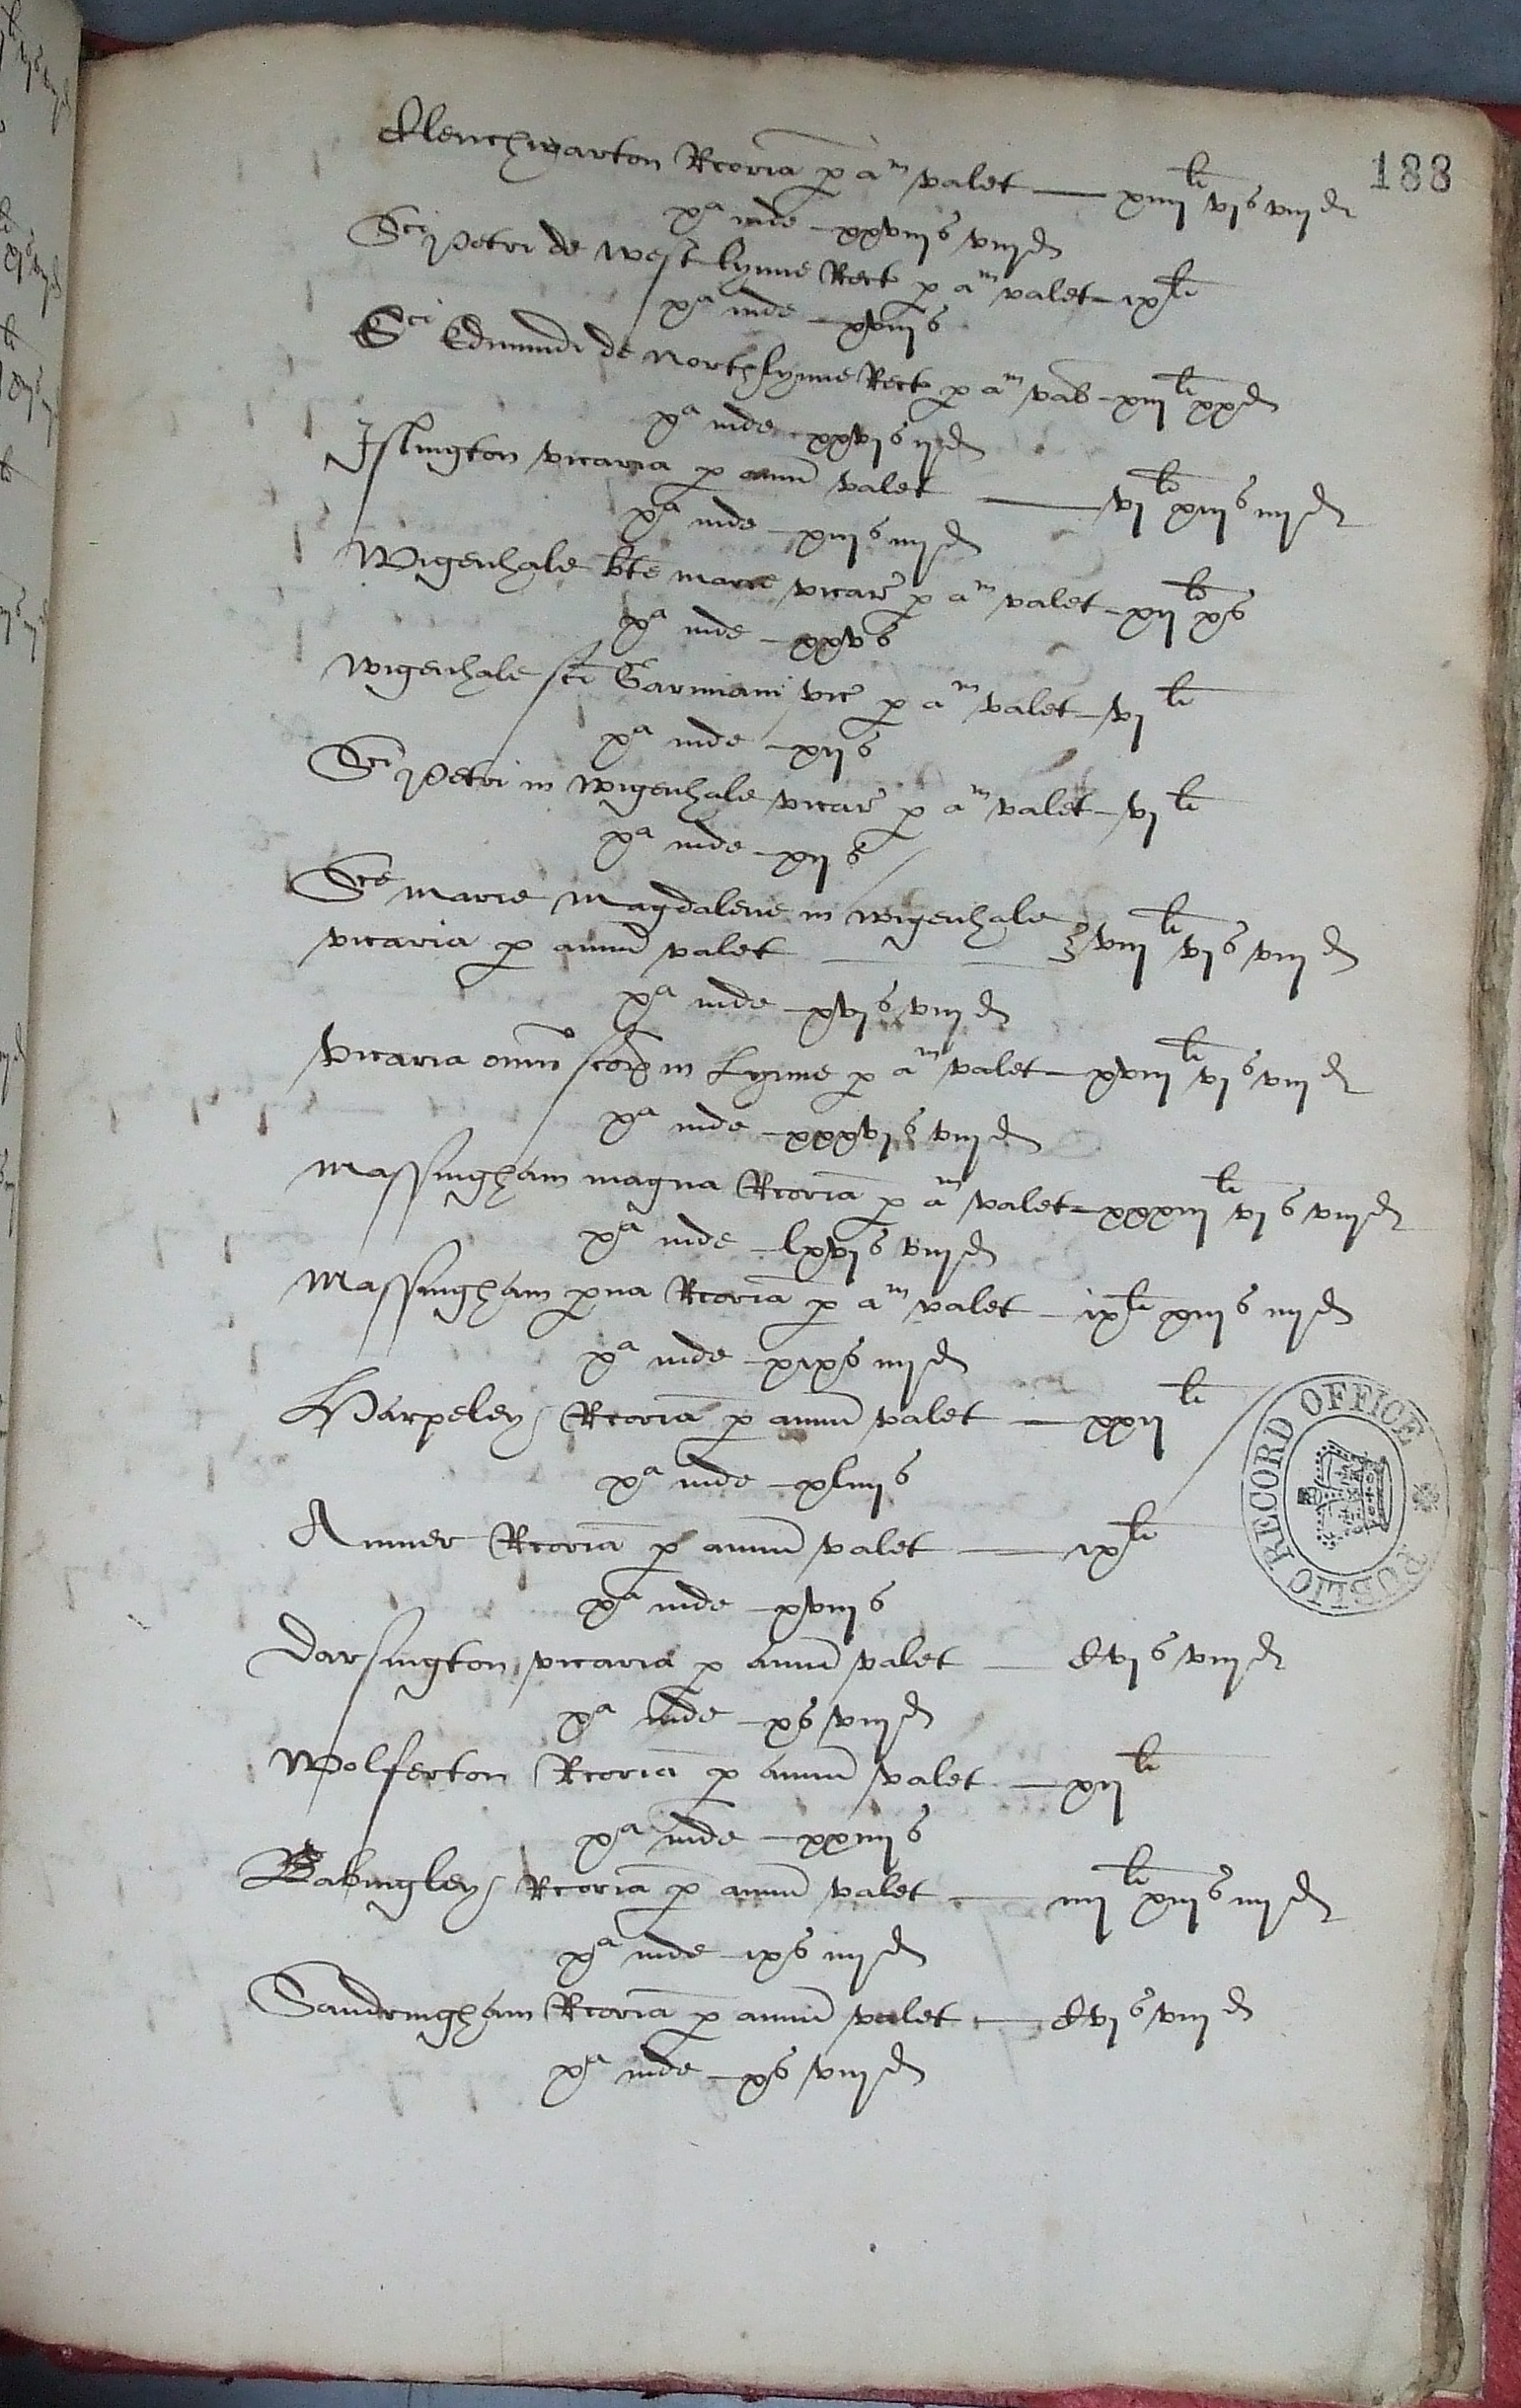 188
Clenchwarton Rcoria p am valet — xiiijli vjs viijd
xa inde — xxviijs viijd
Sci Petri de west lynne Rect p am valet — ixli
xa inde — xviijs
Sci Edmundi de northlynne Rect p am val — xiijli xxd
xa inde — xxvjs ijd
Islington vicaria p annu valet — vjli xiijs iiijd
xa inde — xiijs iiijd
Wigenhale bte marie vicar p am valet — xijli xs
xa inde — xxvs
Wigenhale sci Garmani vic p am valet — vjli
xa inde — xijs
Sci Petri in Wigenhale vicar p am valet — vjli
xa inde — xijs
Sce marie Magdalene in wigenhale
vicaria p annu valet — viijli vjs viijd
xa inde — xvjs viijd
Vicaria omn scor in Lynne p am valet — xviijli vjs viijd
xa inde — xxxvjs viijd
Massingham magna Rcoria p am valet — xxxiijli vjs viijd
xa inde — lxvjs viijd
Massingham pua Rcoria p am valet — ixli xiijs iiijd
xa inde — xixs iiijd
Harpeley Rcoria p annu valet — xxijli
xa inde — xliiijs
Anmer Rcoria p annu valet — ixli
xa inde — xviijs
Darsington vicaria p annu valet — Cvjs viijd
xa inde — xs viijd
Wolferton Rcoria p annu valet — xijli
xa inde — xxiiijs
Babingley Rcoria p annu valet — iiijli xiijs iiijd
xa inde — ixs iiijd
Sandringham Rcoria p annu valet — Cvjs viijd
xa inde — xs viijd
PUBLIC RECORD OFFICE